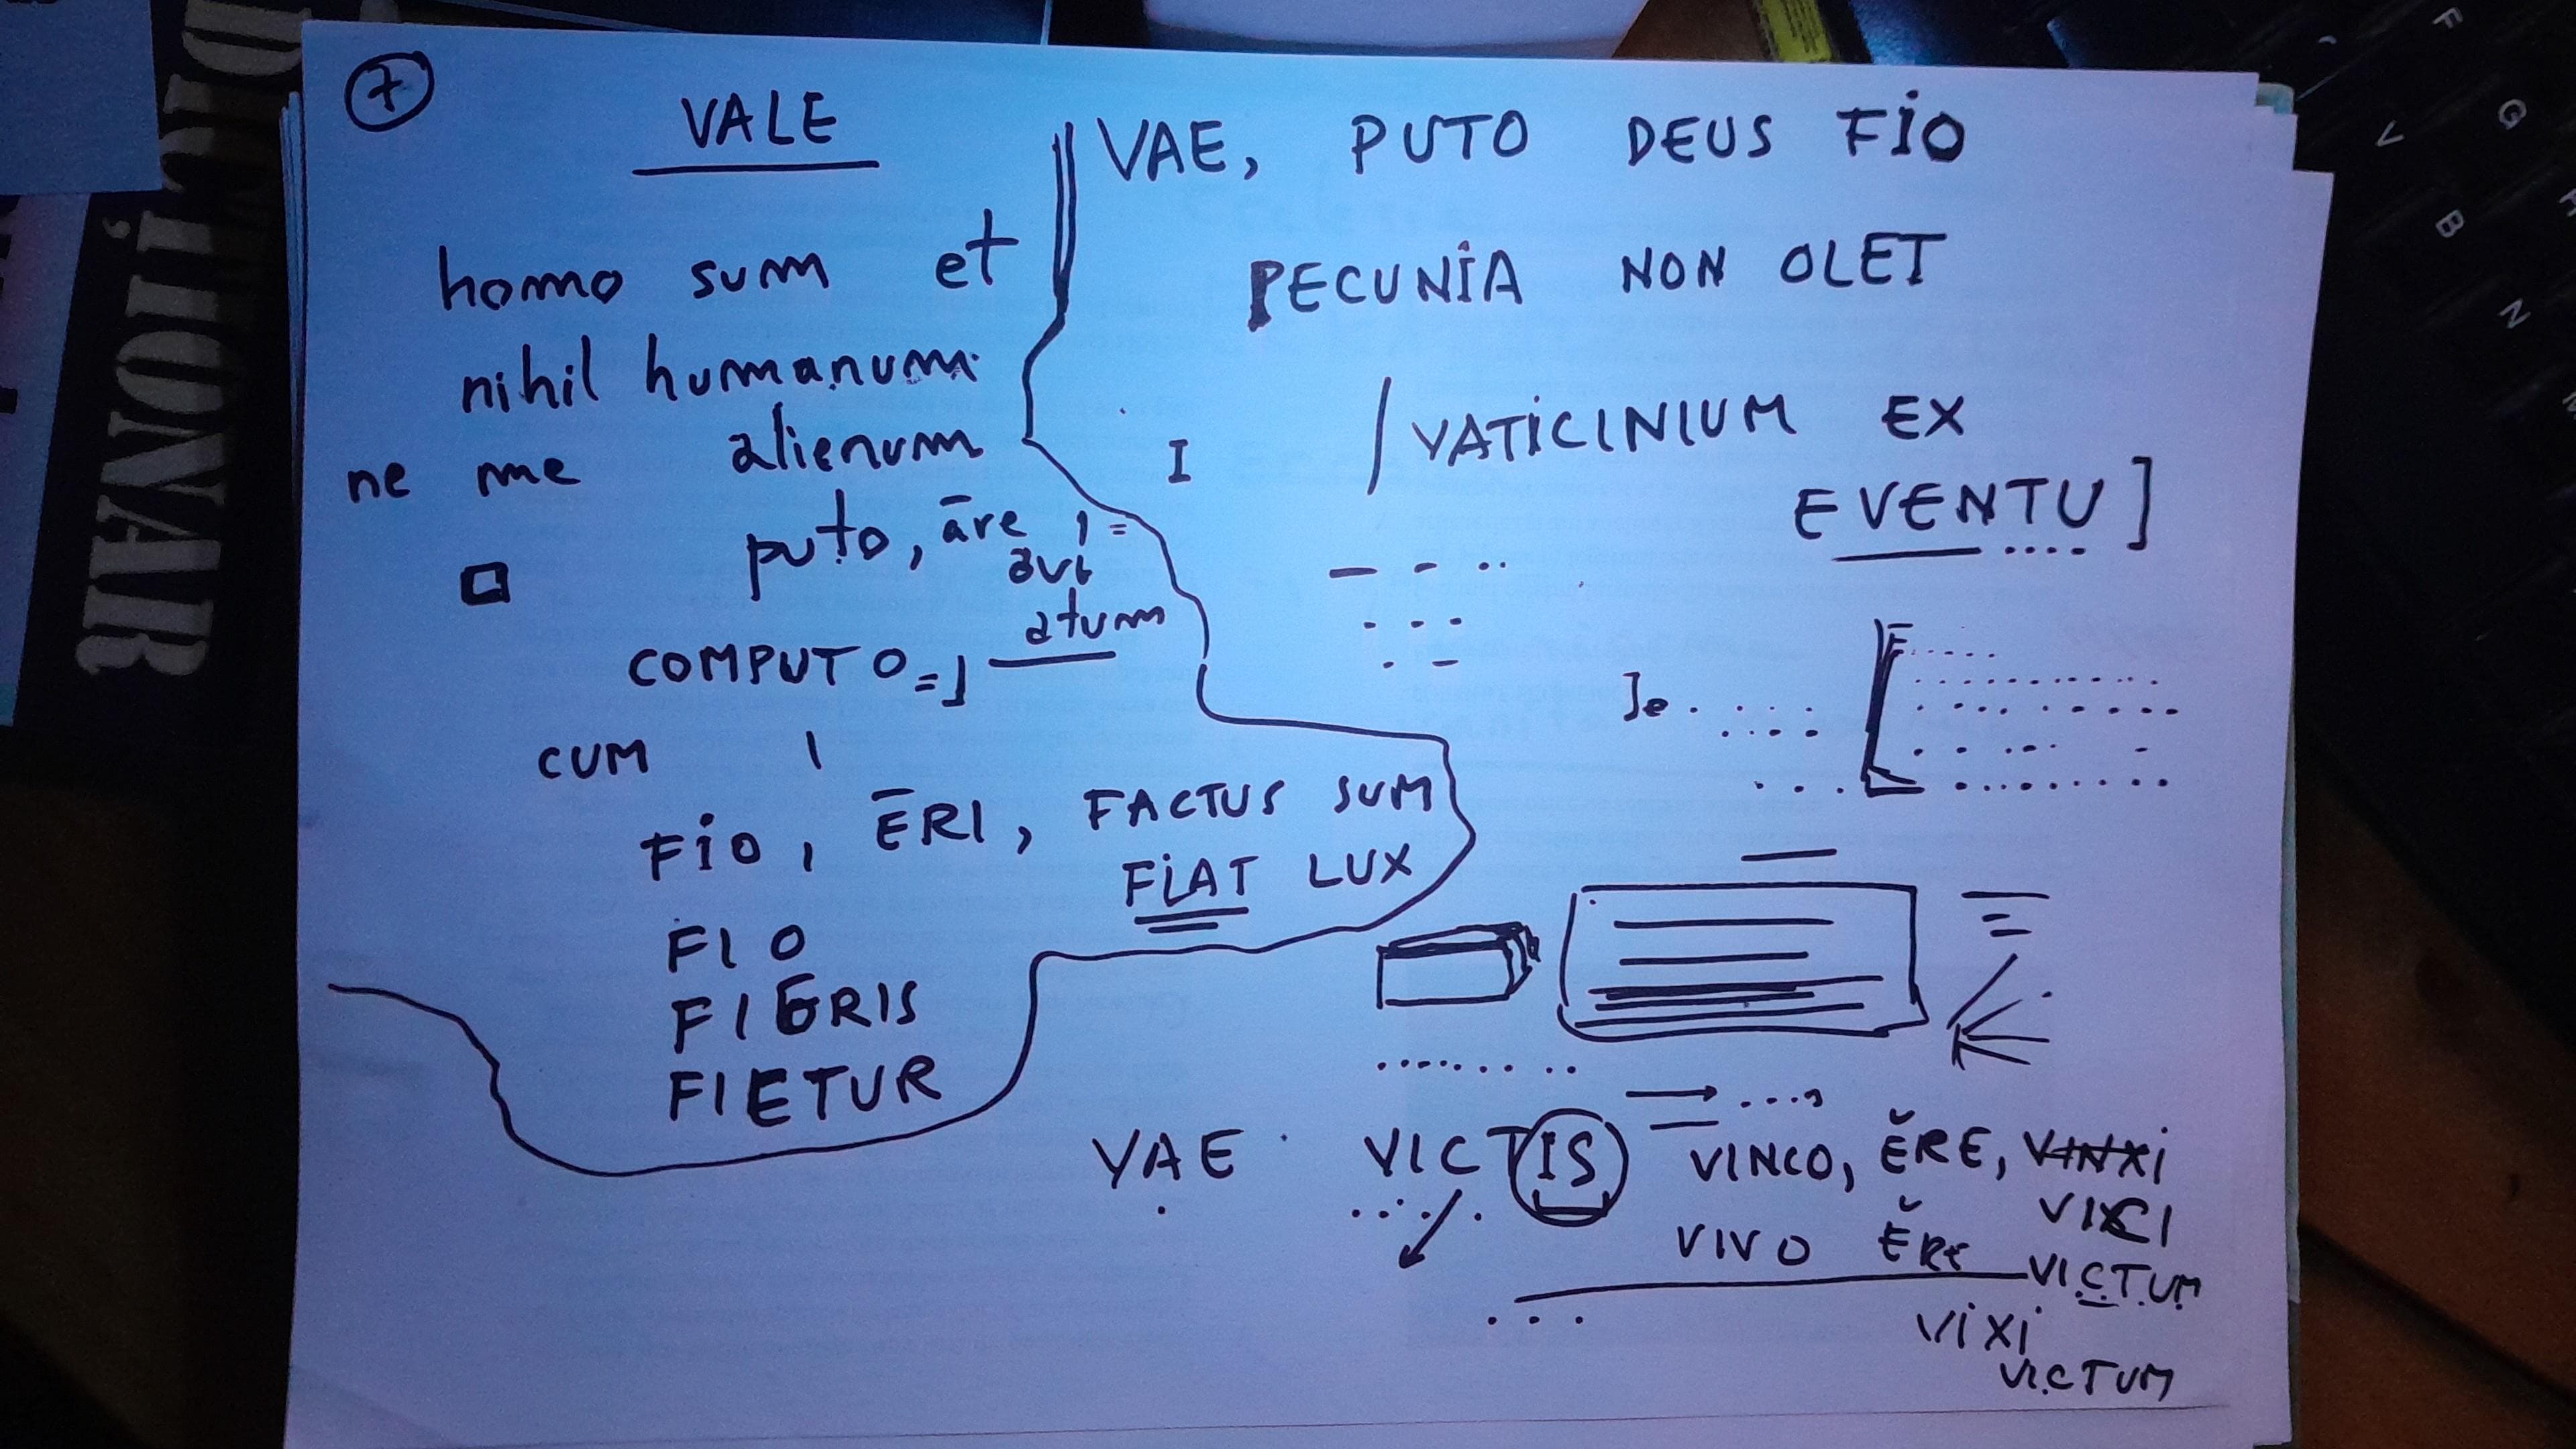 7
VALE
homo sum et
nihil humanum
ne me alienum
puto, āre, =
avi
atum
COMPUTO =
CUM
FIO, ĒRI, FACTUS SUM
FIAT LUX
FIO
FIERIS
FIETUR
VAE, PUTO DEUS FIO
PECUNIA NON OLET
I / VATICINIUM EX
EVENTU ]
Je
F
VAE VICTIS
VINCO, ĔRE, VINXI
VICI
VIVO ĔRE VICTUM
VIXI
VICTUM
DICȚIONAR
F
G
V
B
N